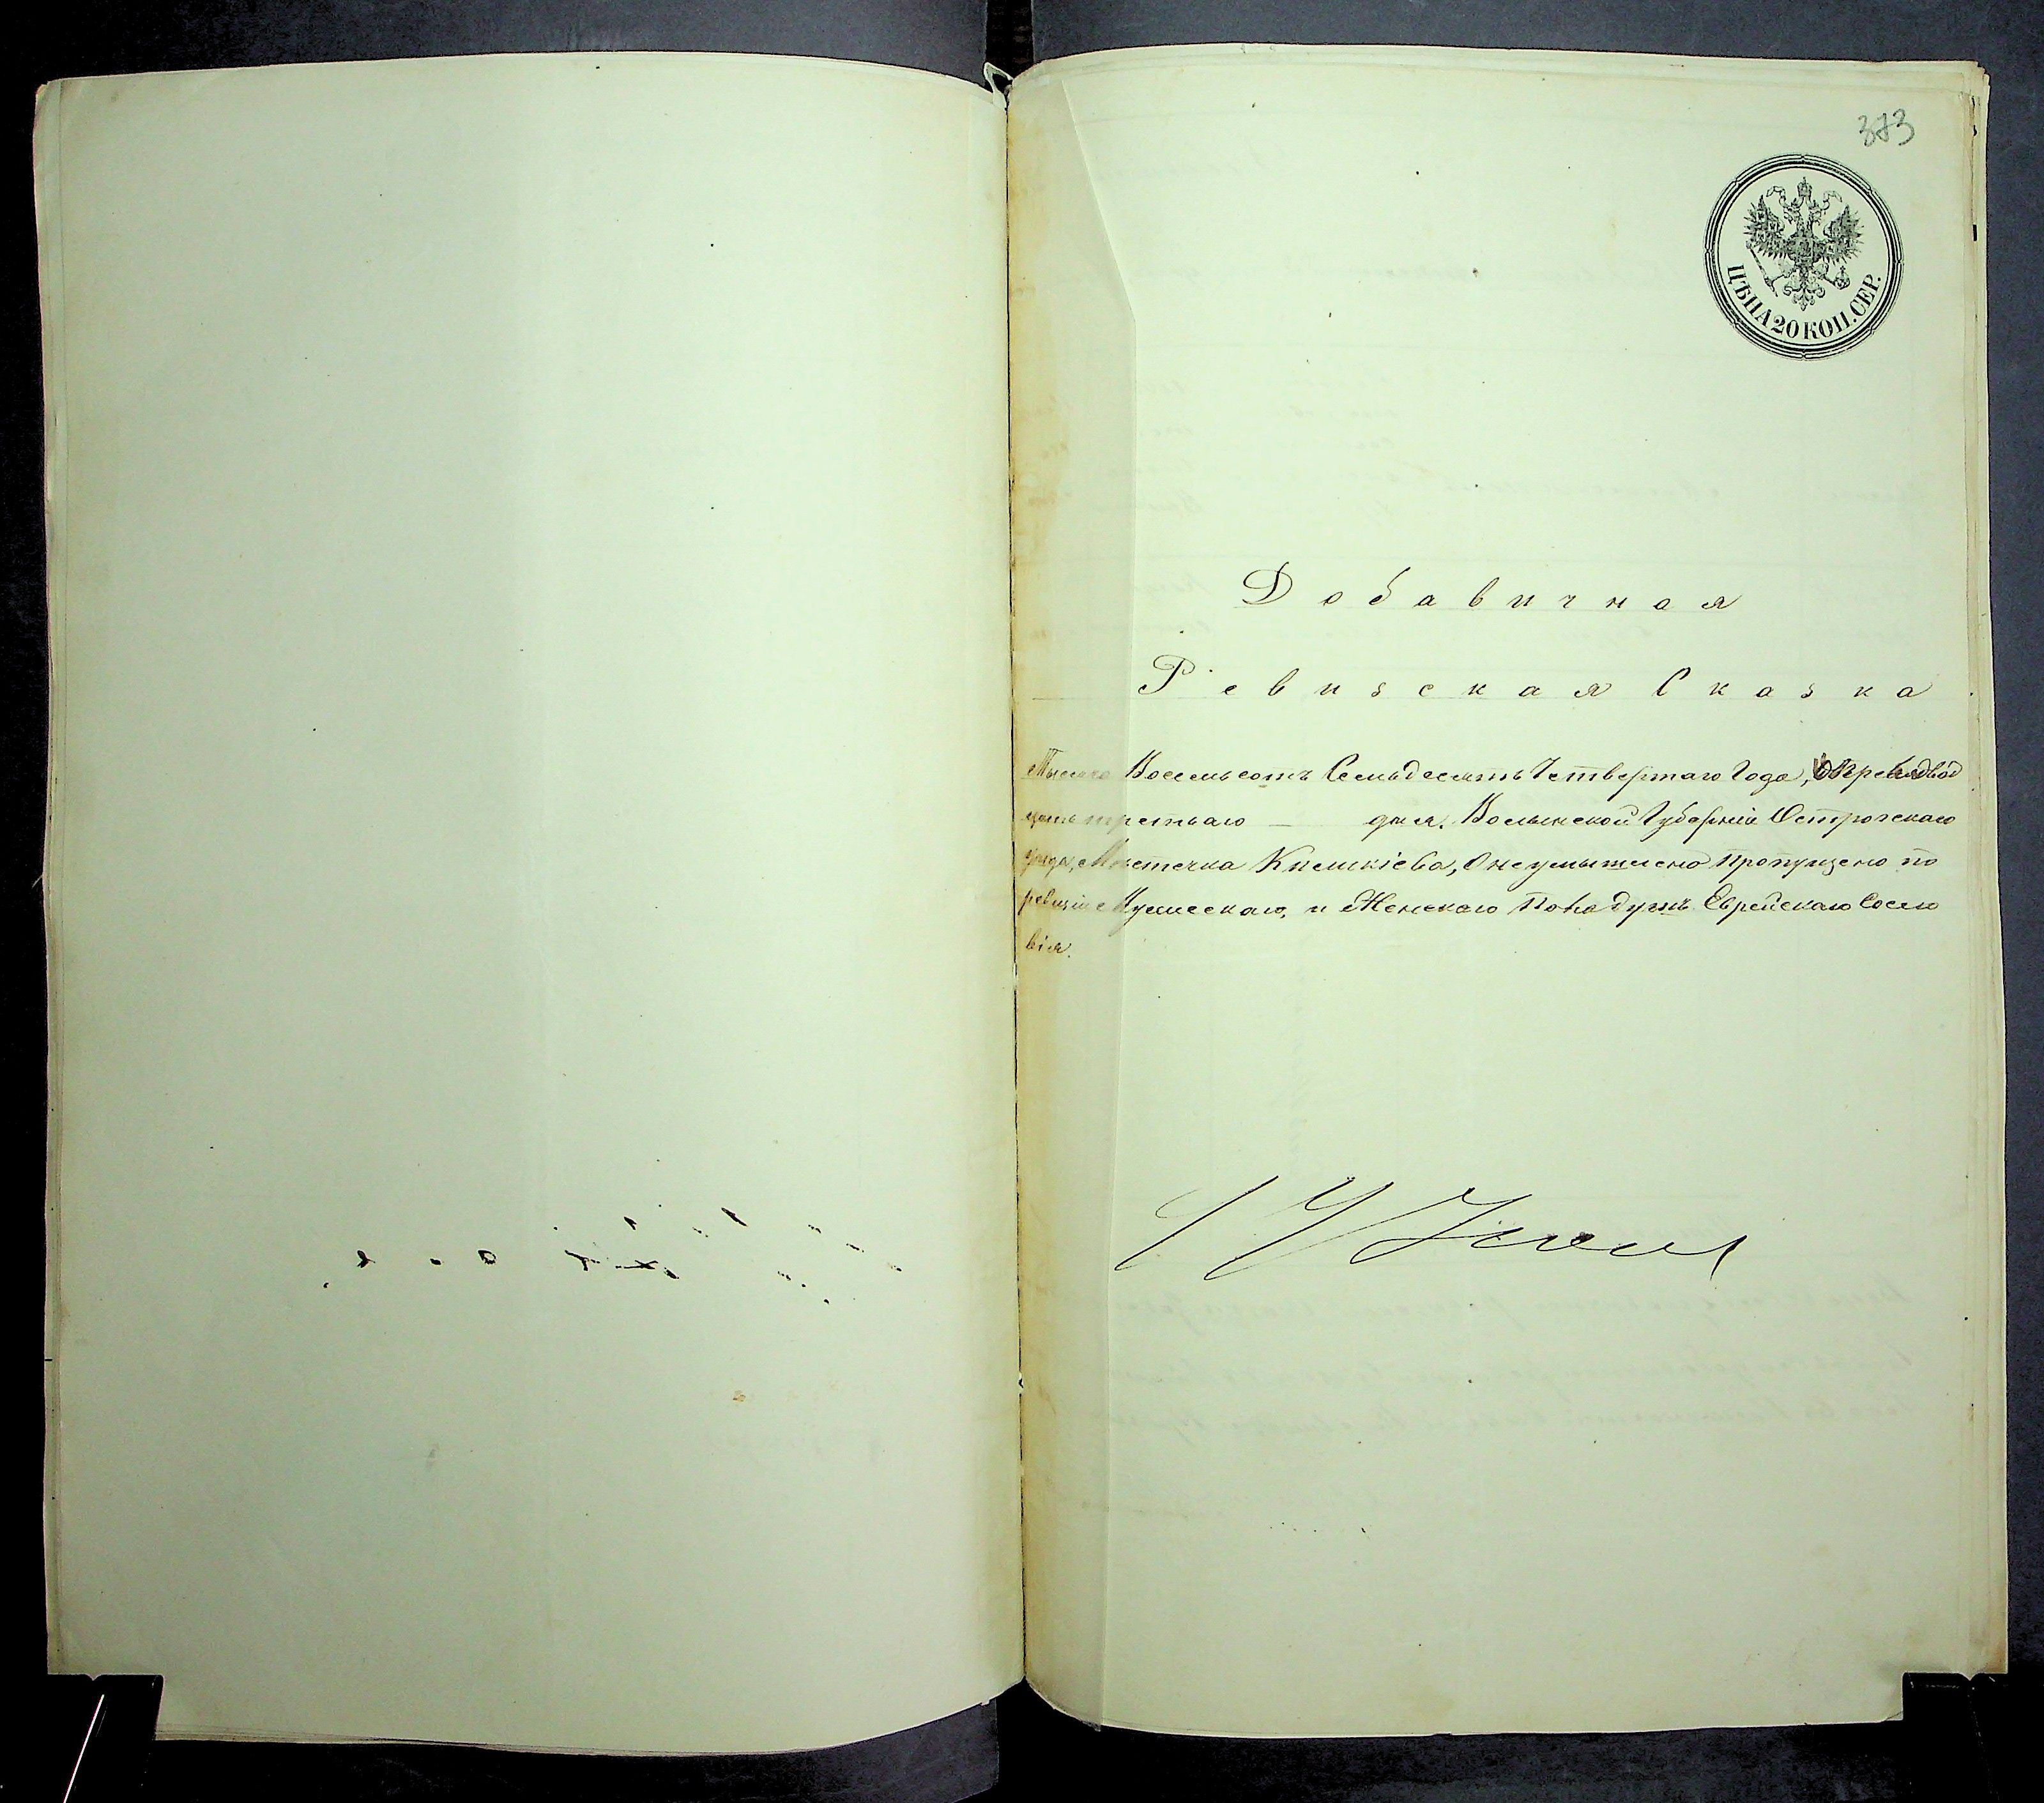 373
ЦѢНА 20 КОП. СЕР.
Добавичная
Ревизская Сказка
Тысяча Восемьсотъ Семьдесятъ Четвертаго Года, двад
цать третьаго — дня. Волынской Губерніи Острогскаго
уезда, Местечка Киликіева, О неумышлено пропущено по
ревизіи Мужескаго, и Женскаго Пола душъ Еврейскаго Сосло
вія.